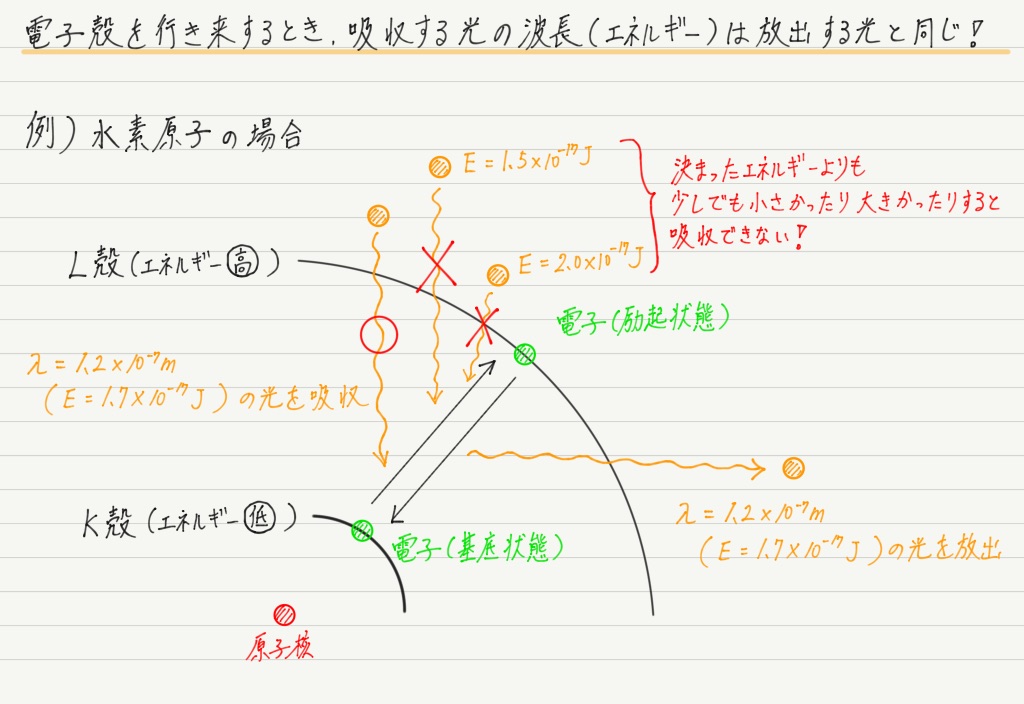 電子殻を行き来するとき、吸収する光の波長(エネルギー)は放出する光と同じ!
例)水素原子の場合
E = 1.5×10⁻¹⁷J
決まったエネルギーよりも
少しでも小さかったり大きかったりすると
吸収できない!
L殻(エネルギー高)
E = 2.0×10⁻¹⁷J
電子(励起状態)
λ = 1.2×10⁻⁷m
(E = 1.7×10⁻¹⁷J)の光を吸収
K殻(エネルギー低)
電子(基底状態)
λ = 1.2×10⁻⁷m
(E = 1.7×10⁻¹⁷J)の光を放出
原子核